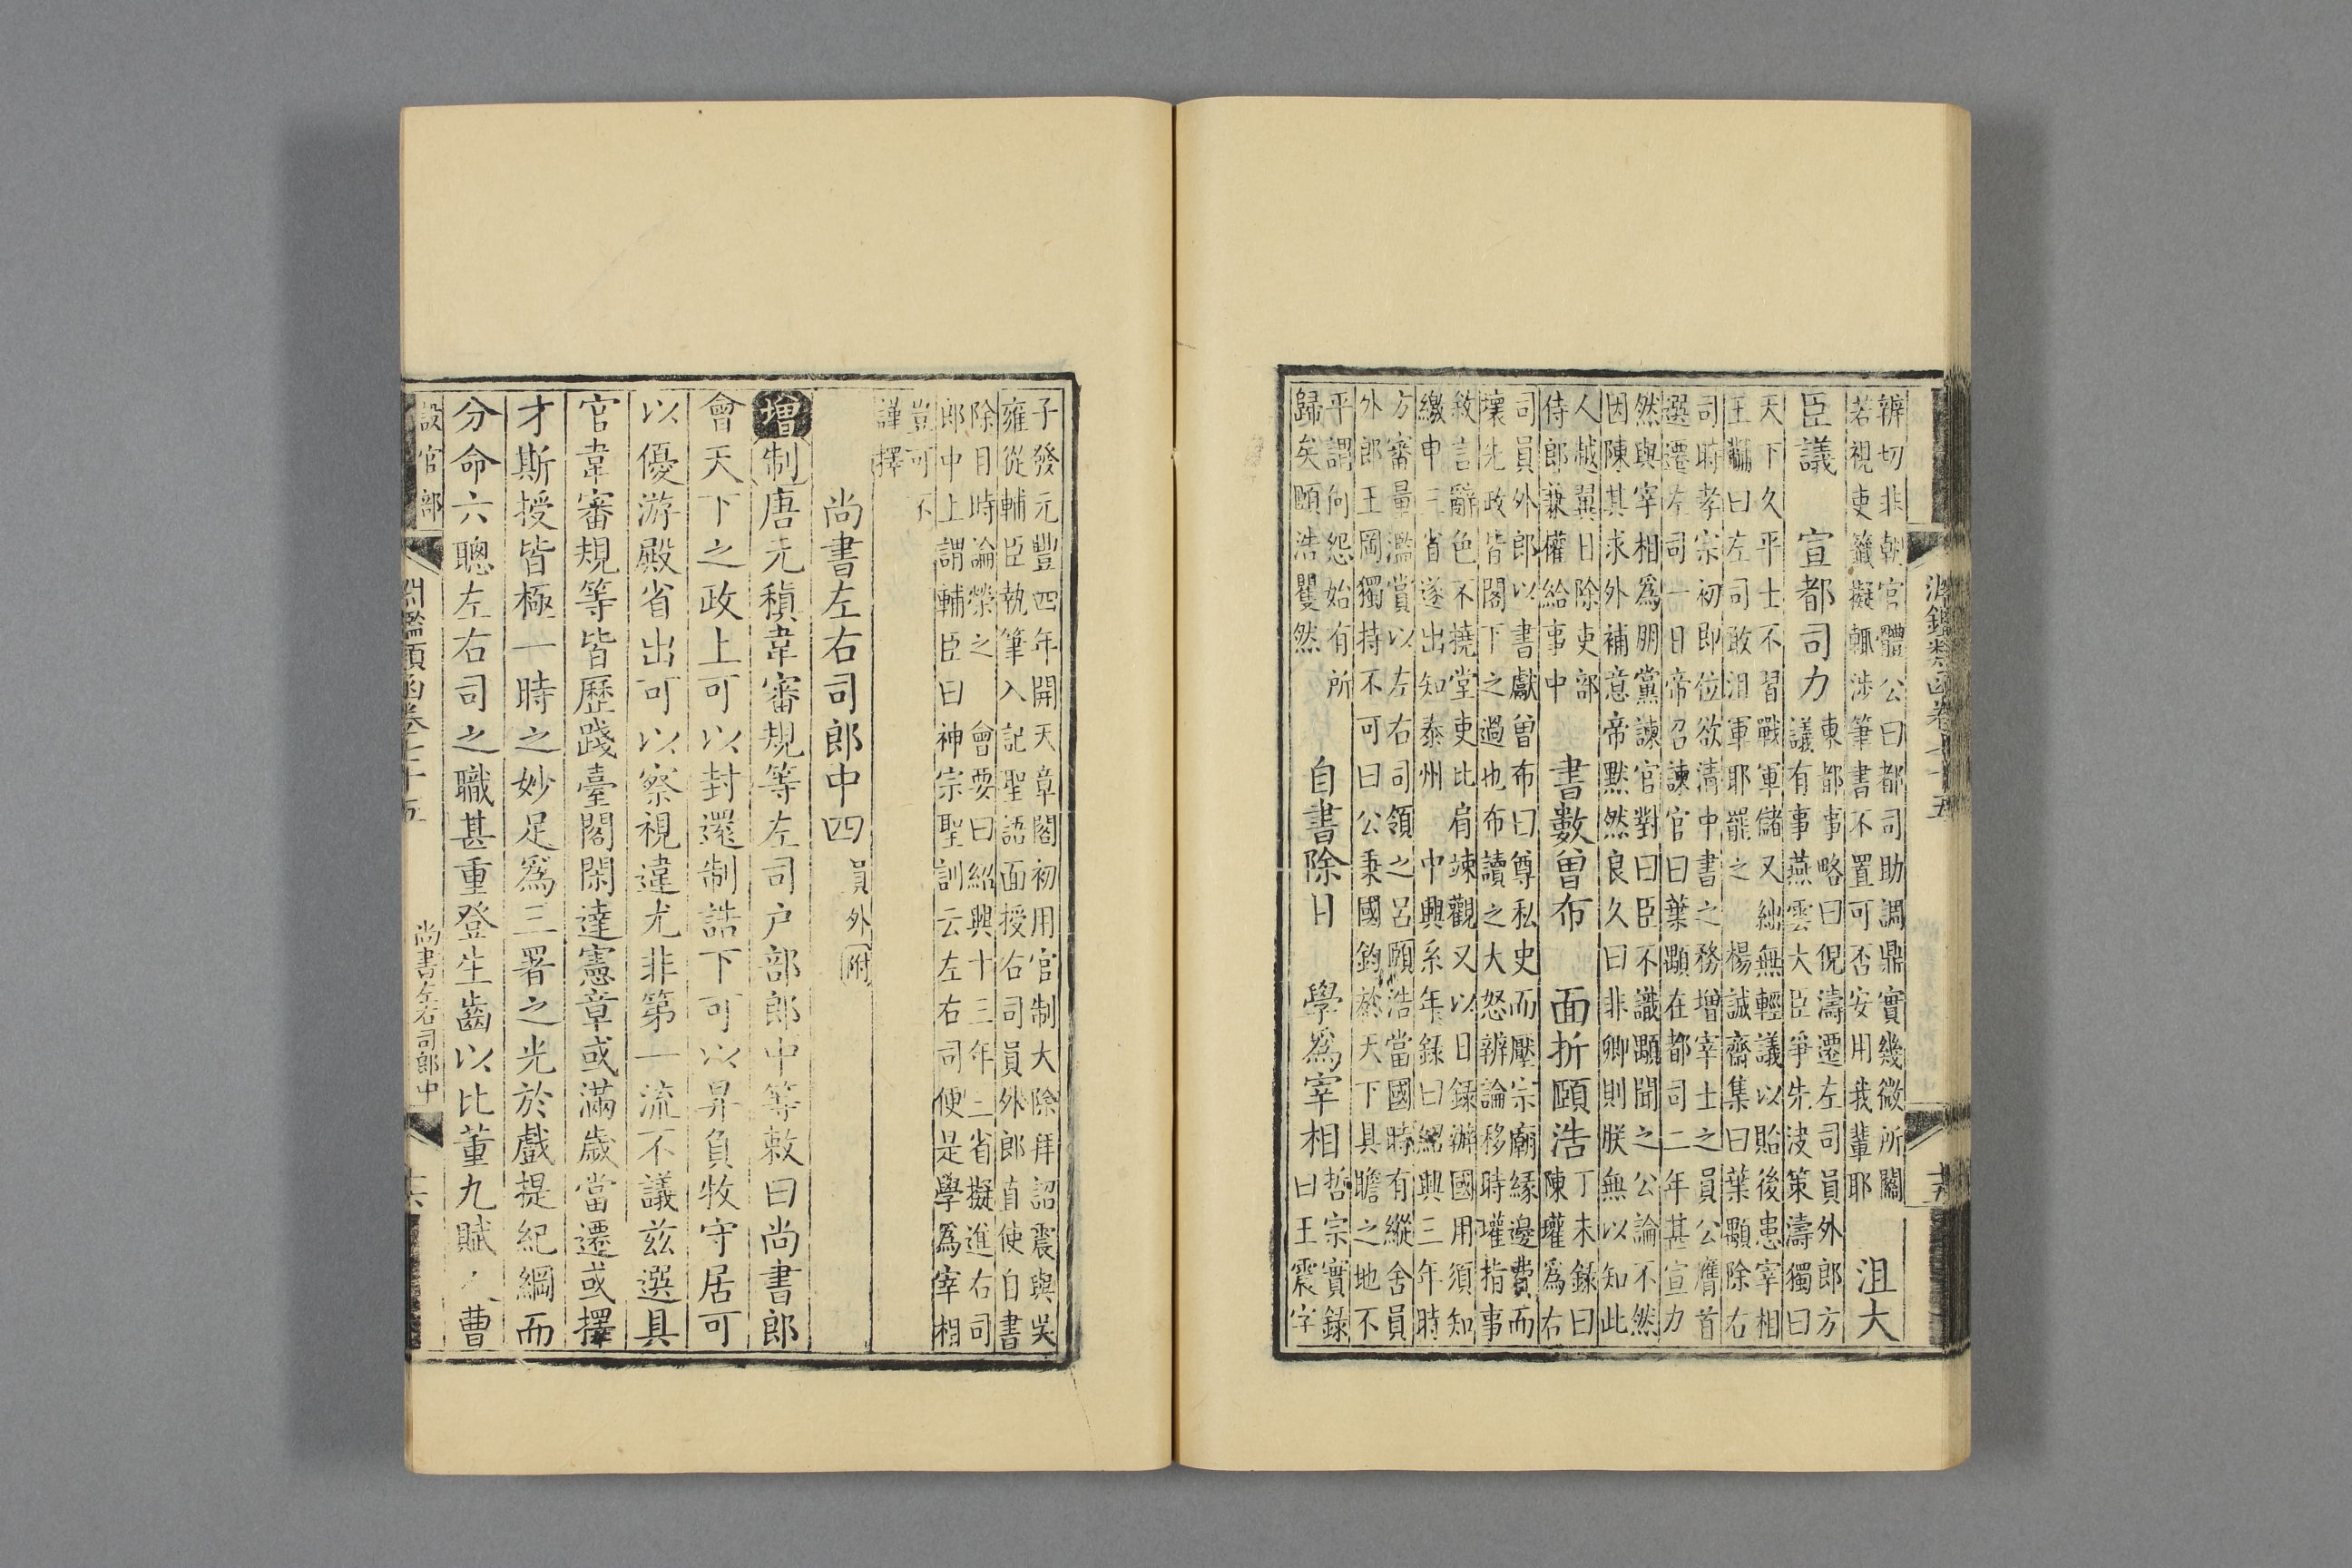 辨切非朝官體公曰都司助調鼎實幾微所關
若視吏籤擬輒涉筆書不置可否安用我輩耶
沮大
臣議 宣都司力
東都事略曰倪濤遷左司員外郎方
議有事燕雲大臣爭先決策濤獨曰
天下久平士不習戰軍儲又絀無輕議以貽後患宰相
王黼曰左司敢沮軍耶罷之 楊誠齋集曰葉顒除右
司時孝宗初即位欲清中書之務增宰士之員公膺首
選遷左司一日帝召諫官曰葉顒在都司二年甚宣力
然與宰相爲朋黨諫官對曰臣不識顒聞之公論不然
因陳其求外補意帝黙然良久曰非卿則朕無以知此
人越翼日除吏部
侍郎兼權給事中
書數曾布 面折頤浩
丁未錄曰
陳瓘爲右
司員外郎以書獻曾布曰尊私史而壓宗廟緣邊費而
壞先政皆閣下之過也布讀之大怒辨論移時瓘指事
敘言辭色不撓堂吏比肩竦觀又以日錄辦國用須知
繳申三省遂出知泰州 中興系年錄曰紹興三年時
方審量濫賞以左右司領之呂頤浩當國時有縱舍員
外郎王岡獨持不可曰公秉國鈞於天下具瞻之地不
平謂何怨始有所
歸矣頤浩瞿然
自書除目 學爲宰相
哲宗實錄
曰王震字
子發元豐四年開天章閣初用官制大除拜詔震與吴
雍從輔臣執筆入記聖語面授右司員外郎直使自書
除目時論榮之 會要曰紹興十三年三省擬進右司
郎中上謂輔臣曰神宗聖訓云左右司便是學爲宰相
豈可不
謹擇
尚書左右司郎中四 員外附
增制唐元稹韋審規等左司户部郎中等敕曰尚書郎
會天下之政上可以封還制誥下可以昇負牧守居可
以優游殿省出可以察視違尤非第一流不議兹選具
官韋審規等皆歷踐臺閣閑達憲章或滿歲當遷或擇
才斯授皆極一時之妙足爲三署之光於戲提紀綱而
分命六聰左右司之職甚重登生齒以比董九賦之曹
淵鑑類函卷七十五
設官部
淵鑑類函卷七十五
尚書左右司郎中
十六